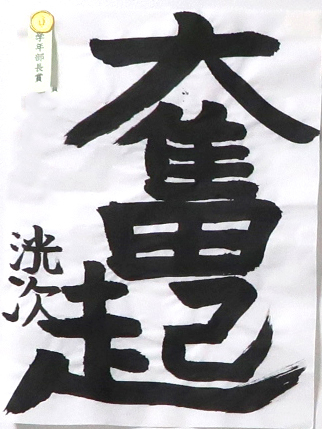 奮起
洸次
学年部長賞